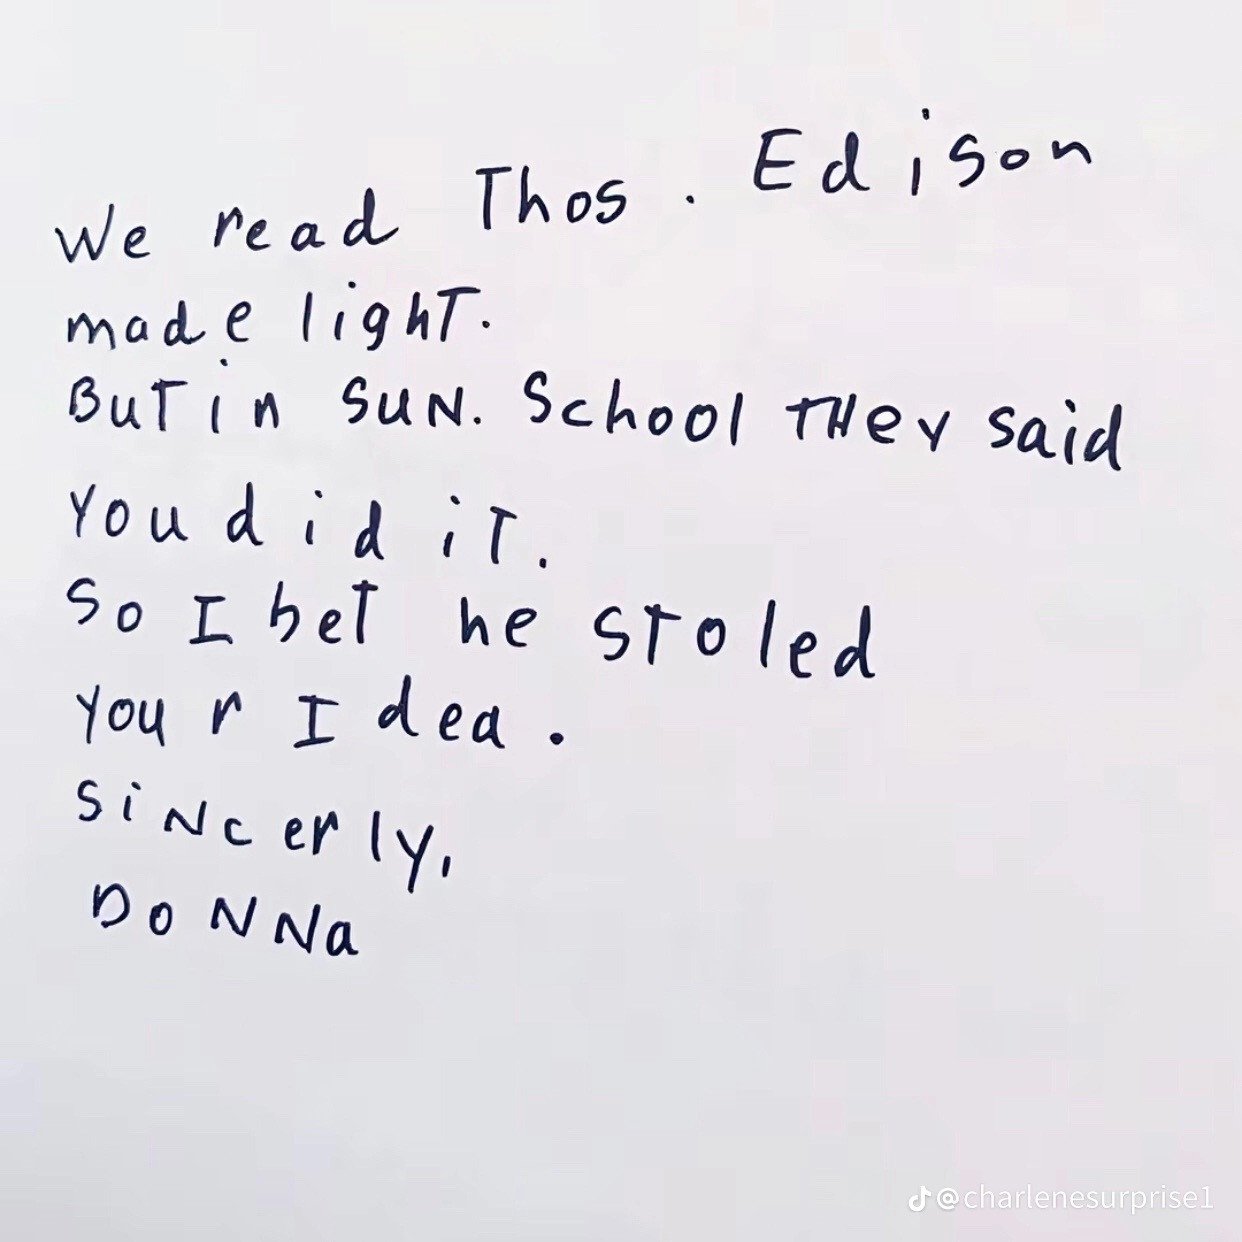 We read Thos. Edison
made light.
But in SUN. School THey said
You did iT.
So I beT he SToled
your Idea.
SiNcerly,
DoNNa
@charlenesurprise1